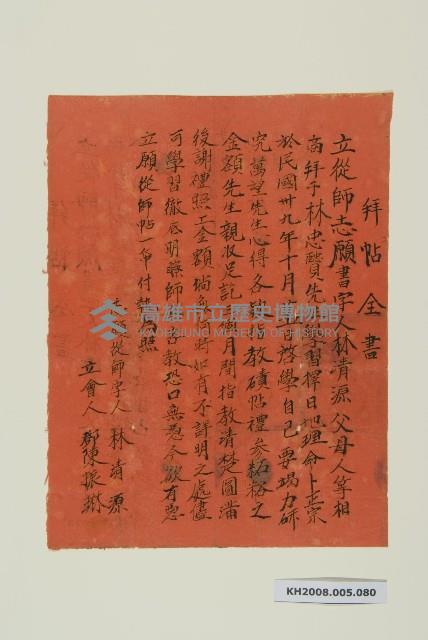 拜帖全書
立從師志願書字人林清源父母人等相
商拜于林忠賢先 學習擇日地理命卜正宗
於民國卅九年十月 啓學自己要竭力研
究萬望先生心得各 教礩帖禮參拾裕之
金額先生親收足訖 月間指教清楚圓滿
後謝禮照工金額 時如有不詳明之處儘
可學習徹底明瞭師 教恐口無憑今欲有憑
立願從師帖一帋付執 照
立願從師字人 林清源
立會人 鄭陳振
高雄市立歷史博物館
KAOHSIUNG MUSEUM OF HISTORY
KH2008.005.080